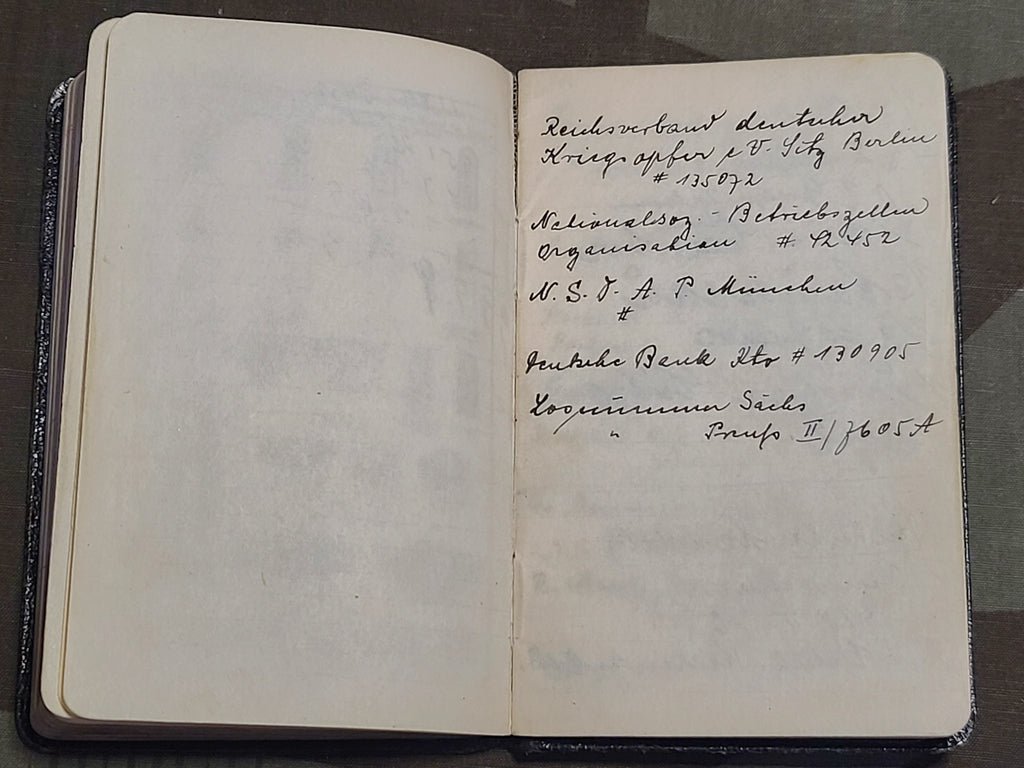 Reichsverband deutscher
Kriegsopfer e V. Sitz Berlin
# 135072
Nationalsoz. - Betriebszellen
Organisation # 42452
N. S. D. A. P. München
#
Deutsche Bank Kto # 130905
Losnummer Sächs
" Preuß II/7605A